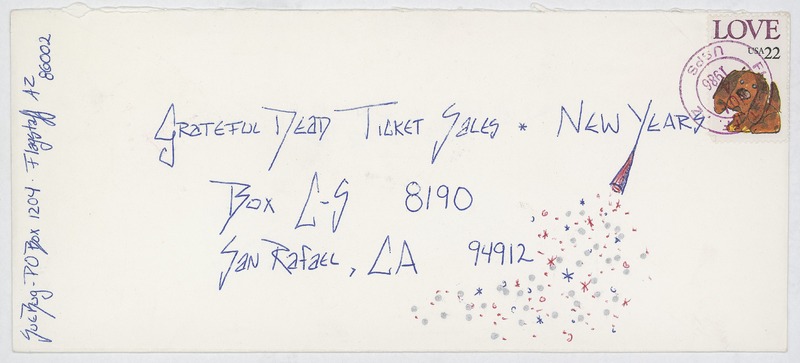 LOVE
USA 22
USPS
1986
GRATEFUL DEAD TICKET SALES * NEW YEARS
BOX C-S 8190
SAN RAFAEL, CA 94912
PO Box 1204 · Flagstaff AZ
86002